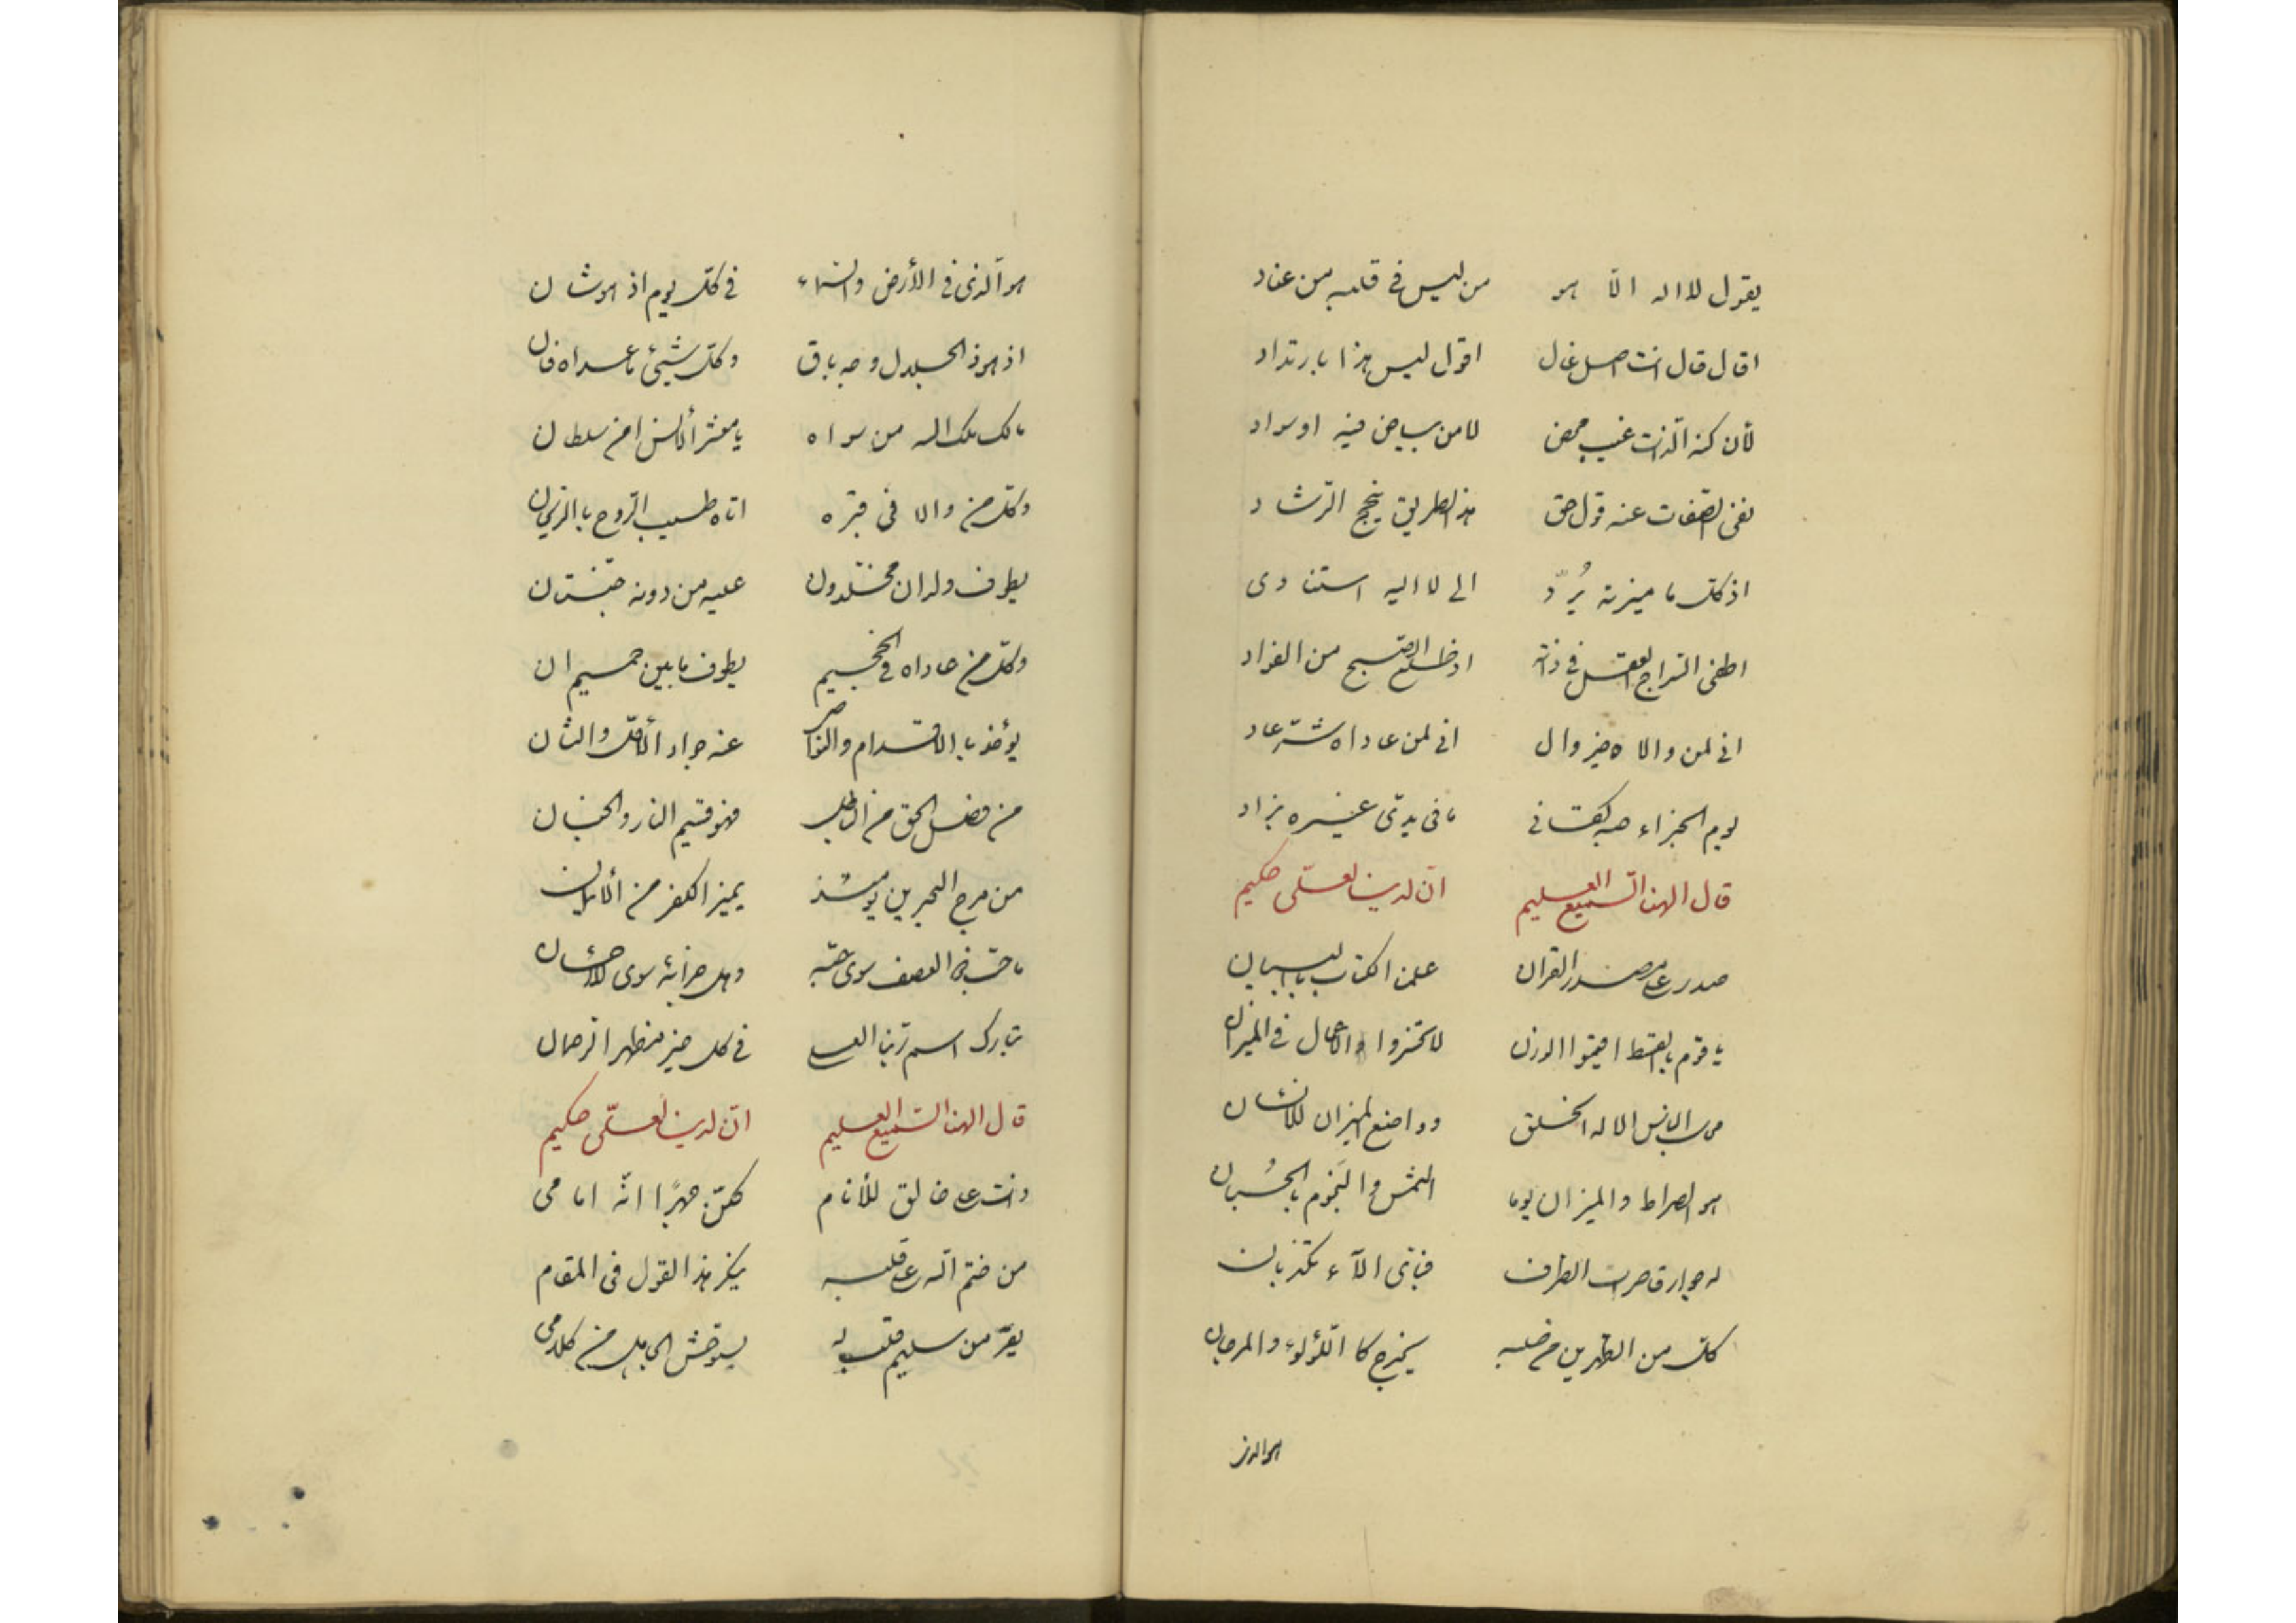 يقول لا اله الّا هو من ليس في قلبه من عناد
اقال قال انت اصل غال اقول ليس هذا بارتداد
لأن كنه الذات غيب محض لا من بياض فيه او سواد
نفى الصفات عنه قول حق هذا الطريق الرشاد
اذ كل ما ميزته يُردّ الى لا اليه استنادى
اطفى السراج العقل في ذاته اذ طلع الصبح من الفؤاد
انى لمن والاه خير وال انى لمن عاداه شرّ عاد
يوم الجزاء حبه كفانى ما فى يدىّ غيره بزاد
قال الهنا السميع العليم انّ لدينا لعلىّ حكيم
صدر على مصدر القران علمنا الكتاب بالبيان
يا قوم بالقسط اقيموا الوزن لا تخسروا الأعمال في الميزان
اله الخلق وواضع الميزان للأنسان
هو الصراط والميزان يوما الشمس والنجوم بالحُسبان
له جوار قاصرات الطرف فبأىّ الآء تكذبان
كل من الطهرين من صلبه يخرج كاللؤلؤ والمرجان
هو الذى
هو الّذى فى الأرض والسماء فى كلّ يوم اذ هو شان
اذ هو ذو الجلال وجه باق وكل شيئ ما عداه فان
ملك اله من سواه يا معشر الأنس من سلطان
وكل من والا فى قبره اتاه طيب الرّوح بالريحان
يطوف ولدان مخلّدون عليه من دونه جنّتان
وكل من عاداه فى الجحيم يطوف ما بين حميم ان
يؤخذ بالاقدام والنواصى عنه جواد الأوّل والثان
من فصل الحق من الباطل فهو قسيم النار والجنان
من مرج البحرين يومئذ يميز الكفر من الأيمان
ما سوى حبّه وهل جزائه سوى الأحسان
تبارك اسم ربّنا العلى فى كل خير مظهر الرحمان
قال الهنا السميع العليم انّ لدينا لعلىّ حكيم
خالق للأنام جهرًا انّه امامى
من ختم الله على قلبه ينكر هذا القول فى المقام
يقرّ من سليم قلب به يستوحش الجاهل من كلامى